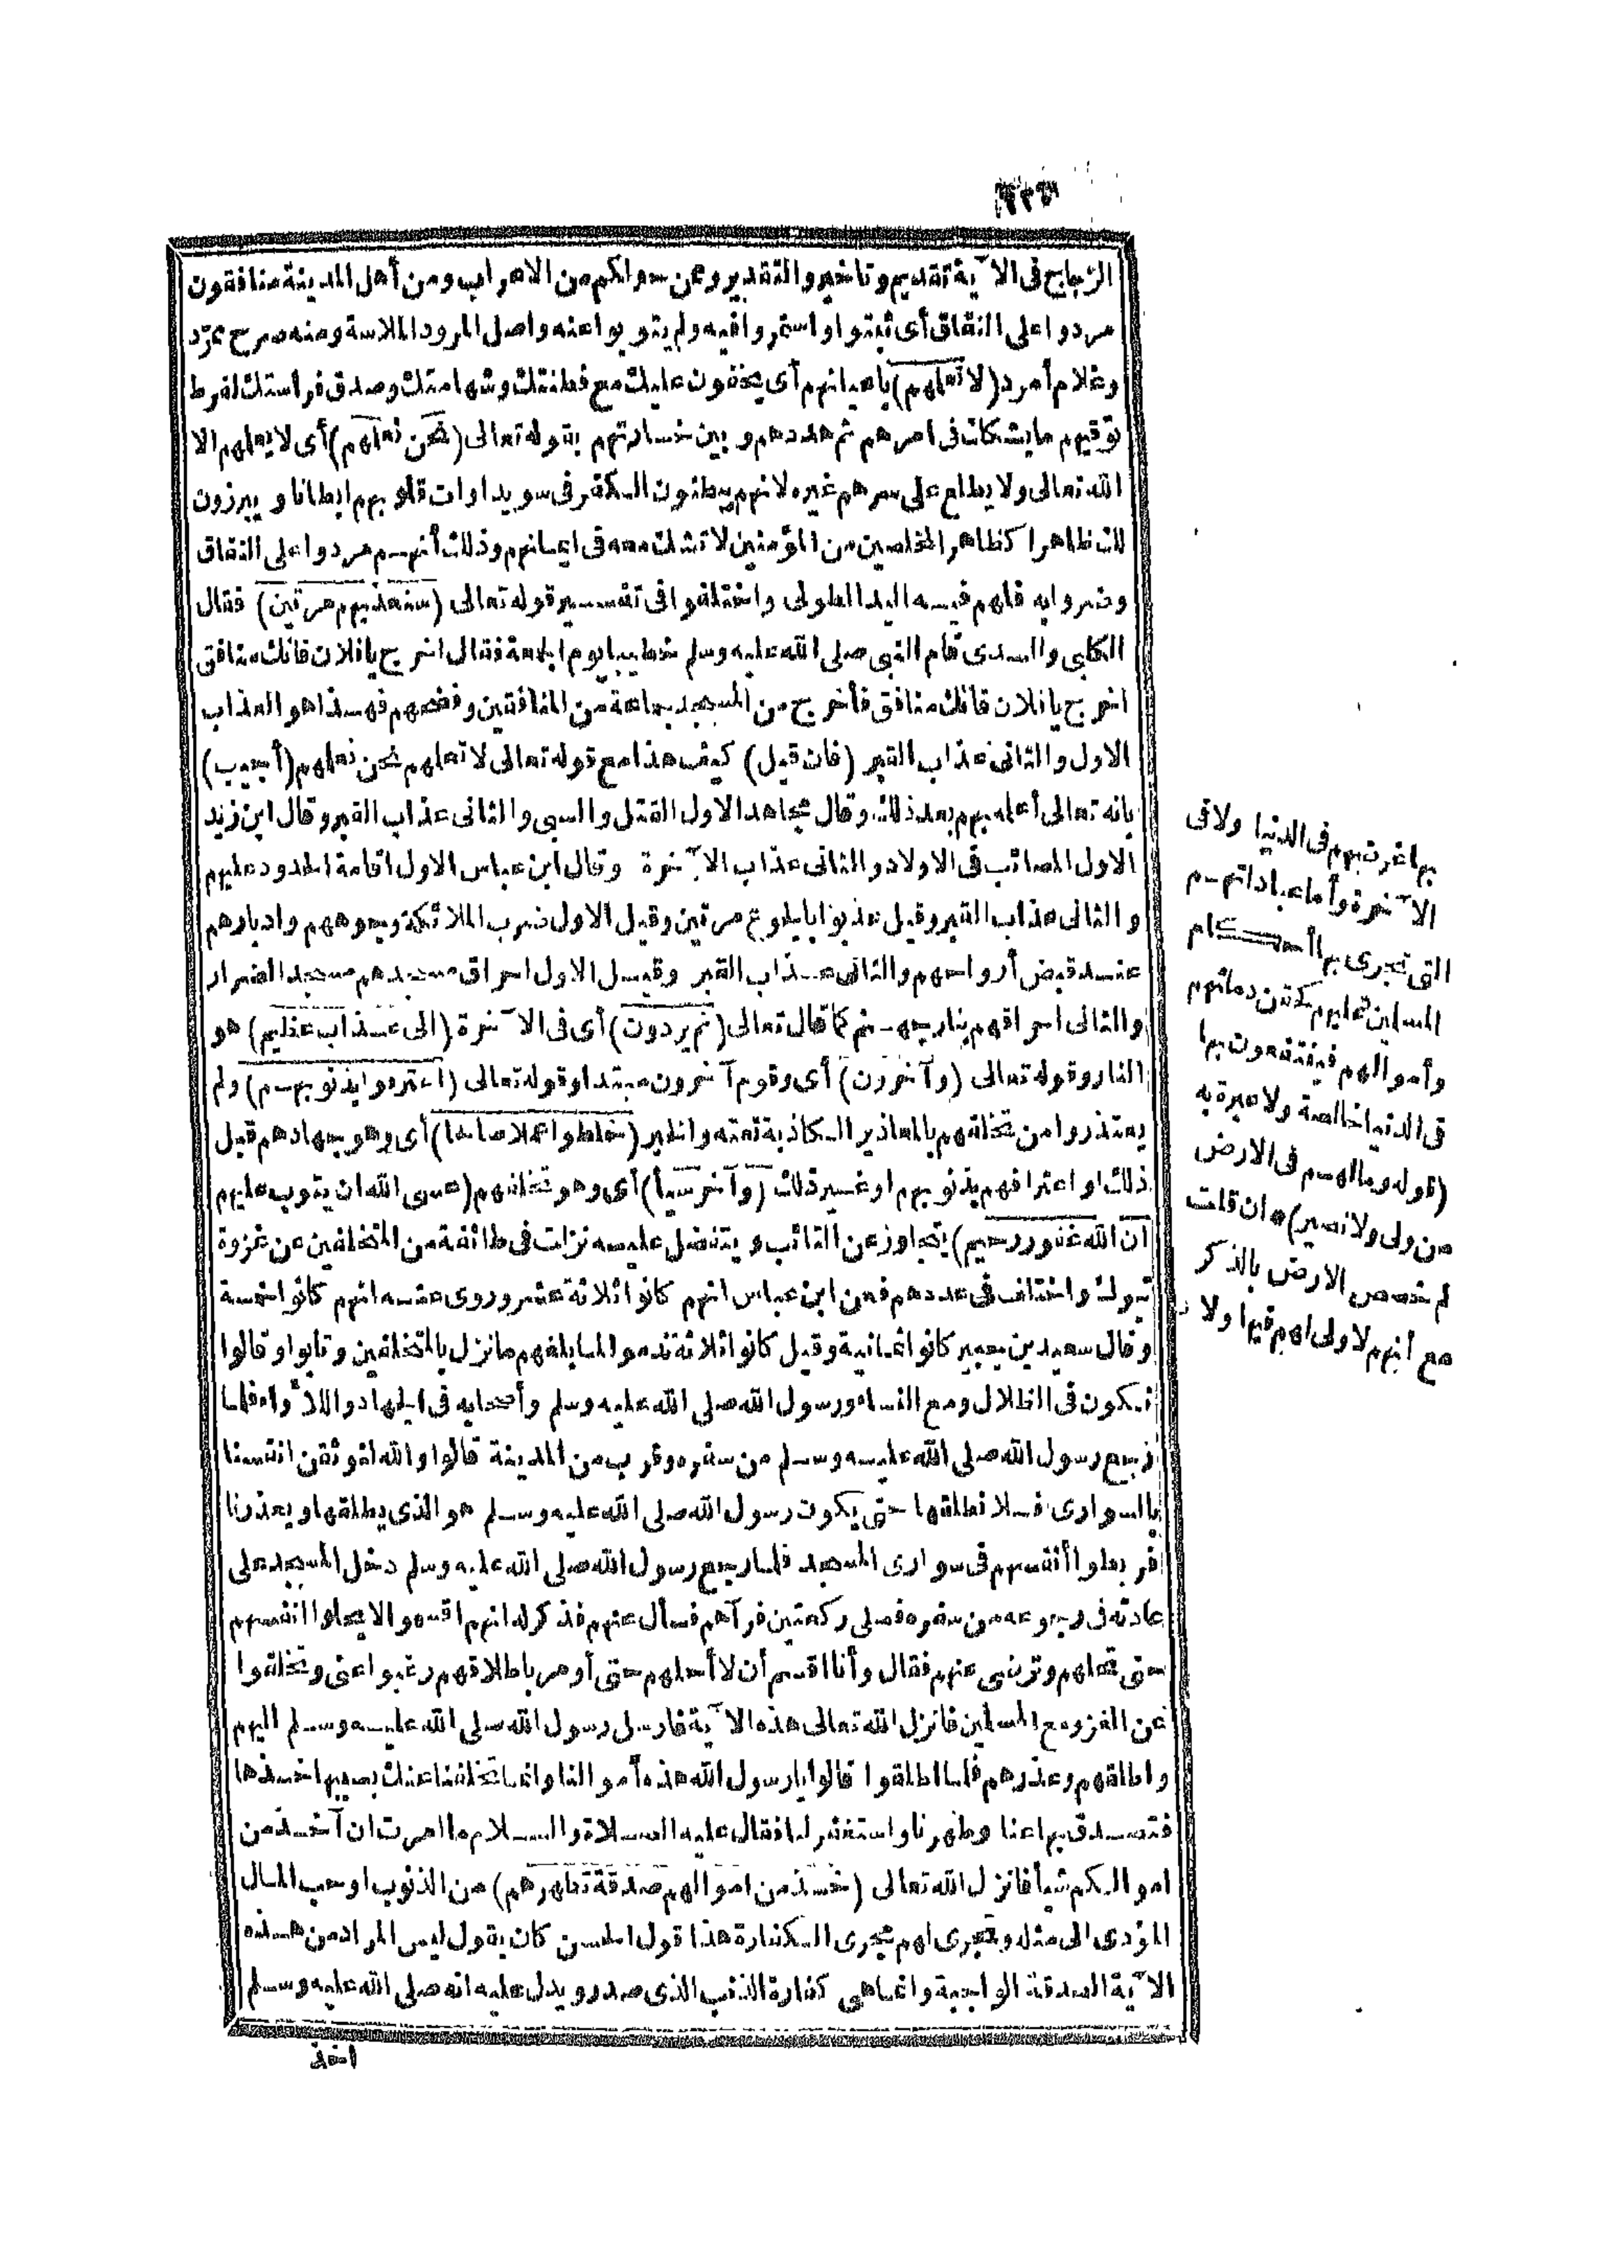 الزجاج في الآية تقديم وتاخير والتقدير وممن حولكم من الاعراب ومن أهل المدينة منافقون
مردوا على النفاق أى ثبتوا واستمروا فيه ولم يتوبوا عنه واصل المرود الملاسة ومنه صرح ممرّد
وغلام أمرد (لا تعلمهم) بأعيانهم أى يخفون عليك مع فطنتك وشهامتك وصدق فراستك لفرط
توقيهم ما يشكك فى امرهم ثم هددهم وبين خسارتهم بقوله تعالى (نحن نعلمهم) أى لا يعلمهم الا
الله تعالى ولا يطلع على سرهم غيره لانهم يبطنون الكفر فى سويداوات قلوبهم ابطانا ويبرزون
لك ظاهرا كظاهر المخلصين من المؤمنين لا تشك معه فى ايمانهم وذلك أنهم مردوا على النفاق
وضروا به فلهم فيه اليد الطولى واختلفوا فى تفسير قوله تعالى (سنعذبهم مرتين) فقال
الكلبى والسدى قام النبى صلى الله عليه وسلم خطيبا يوم الجمعة فقال اخرج يا فلان فانك منافق
اخرج يا فلان فانك منافق فأخرج من المسجد جماعة من المنافقين وفضحهم فهذا هو العذاب
الاول والثانى عذاب القبر (فان قيل) كيف هذا مع قوله تعالى لا تعلمهم نحن نعلمهم (أجيب)
بانه تعالى أعلمه بهم بعد ذلك وقال مجاهد الاول القتل والسبى والثانى عذاب القبر وقال ابن زيد
الاول المصائب فى الاولاد والثانى عذاب الآخرة وقال ابن عباس الاول اقامة الحدود عليهم
والثانى عذاب القبر وقيل عذبوا بالجوع مرتين وقيل الاول ضرب الملائكة وجوههم وادبارهم
عند قبض أرواحهم والثانى عذاب القبر وقيل الاول احراق مسجدهم مسجد الضرار
والثانى احراقهم بنار جهنم كما قال تعالى (ثم يردون) أى فى الآخرة (الى عذاب عظيم) هو
النار وقوله تعالى (وآخرون) أى وقوم آخرون مبتدا وقوله تعالى (اعترفوا بذنوبهم) ولم
يعتذروا من تخلفهم بالمعاذير الكاذبة نعته والخبر (خلطوا عملا صالحا) أى وهو جهادهم قبل
ذلك او اعترافهم بذنوبهم او غير ذلك (وآخر سيأ) أى وهو تخلفهم (عسى الله ان يتوب عليهم
ان الله غفور رحيم) يتجاوز عن التائب ويتفضل عليه نزلت فى طائفة من المتخلفين عن غزوة
تبوك واختلف فى عددهم فعن ابن عباس انهم كانوا ثلاثة عشر وروى عنه انهم كانوا خمسة
وقال سعيد بن جبير كانوا ثمانية وقيل كانوا ثلاثة ندموا لما بلغهم ما نزل بالمتخلفين وتابوا وقالوا
نكون فى الظلال ومع النساء ورسول الله صلى الله عليه وسلم وأصحابه فى الجهاد واللأواء فلما
رجع رسول الله صلى الله عليه وسلم من سفره وقرب من المدينة قالوا والله لنوثقن انفسنا
بالسوارى فلا نطلقها حتى يكون رسول الله صلى الله عليه وسلم هو الذى يطلقها ويعذرنا
فربطوا أنفسهم فى سوارى المسجد فلما رجع رسول الله صلى الله عليه وسلم دخل المسجد على
عادته فى رجوعه من سفره فصلى ركعتين فرآهم فسأل عنهم فذكر له انهم اقسموا لا يحلوا انفسهم
حتى تحلهم وترضى عنهم فقال وأنا اقسم أن لا أحلهم حتى أومر باطلاقهم رغبوا عنى وتخلفوا
عن الغزو مع المسلمين فانزل الله تعالى هذه الآية فارسل رسول الله صلى الله عليه وسلم اليهم
واطلقهم وعذرهم فلما اطلقوا قالوا يا رسول الله هذه أموالنا وانما تخلفنا عنك بسببها خذها
فتصدق بها عنا وطهرنا واستغفر لنا فقال عليه الصلاة والسلام ما امرت ان آخذ من
اموالكم شيأ فانزل الله تعالى (خذ من اموالهم صدقة تطهرهم) من الذنوب او حب المال
المؤدى الى مثله وتجرى لهم مجرى الكفارة هذا قول الحسن كان يقول ليس المراد من هذه
الآية الصدقة الواجبة وانما هى كفارة الذنب الذى صدر ويدل عليه انه صلى الله عليه وسلم
اخذ
بها غرت بهم فى الدنيا ولا فى
الآخرة وأما عباداتهم
التى تجرى بها أحكام
المسلمين عليهم كحقن دمائهم
وأموالهم فينتفعون بها
فى الدنيا خالصة ولا عبرة به
(قوله وما لهم فى الارض
من ولى ولا نصير) ان قلت
لم خصص الارض بالذكر
مع أنهم لا ولى لهم فيها ولا